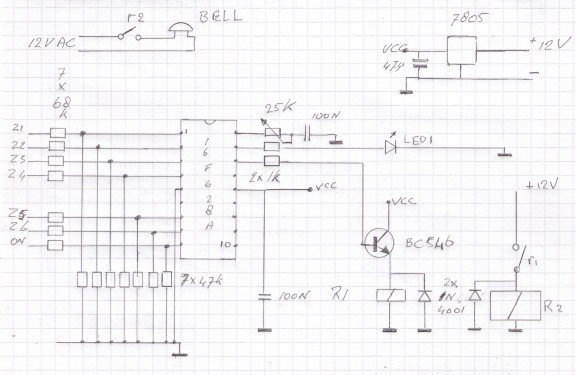 r2
BELL
12V AC
7805
VCC
+ 12V
47µ
-
7
x
68
k
25K
100N
Z1
Z2
Z3
Z4
Z5
Z6
ON
1
1
6
F
6
2
8
A
10
2x 1k
LED1
VCC
VCC
+12V
BC546
r1
7x47k
100N
R1
2x
1N
4001
R2